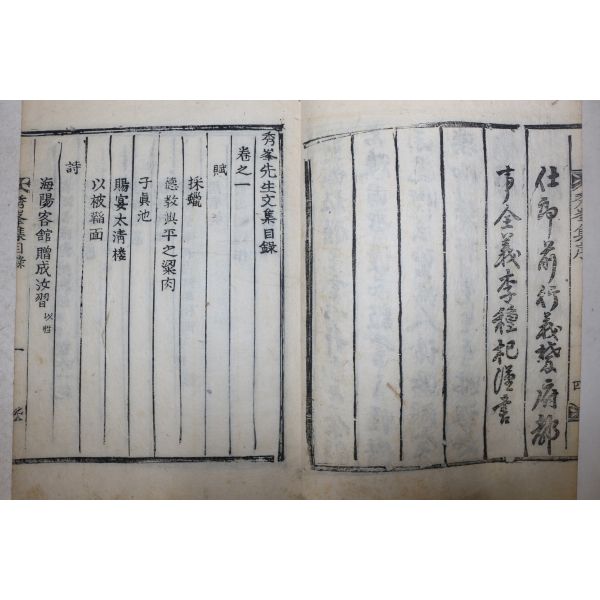 仕郎前行義禁府都
事全義李種杞謹書
秀峯先生文集目錄
卷之一
賦
採蠟
德教興平之粱肉
子眞池
賜宴太清樓
以被韜面
詩
海陽客館贈成汝習
秀峯集目錄
一